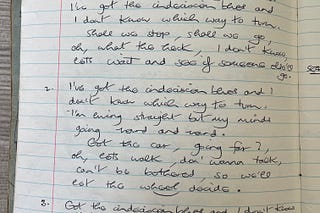 I've got the indecision blues and
I don't know which way to turn.
Shall we stop, shall we go,
oh, what the heck, I don't know,
lets wait and see if someone else'll
go.
2. I've got the indecision blues and I
don't know which way to turn.
I'm driving straight but my minds
going round and round.
Got the car, going far?,
oh, lets walk, don' wanna talk,
can't be bothered, so we'll
let the wheel decide.
3. Got the indecision blues and I don't know